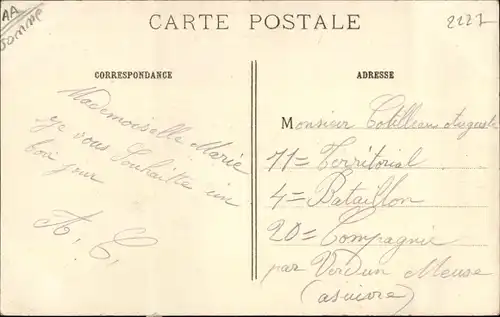 AA
Somme
CARTE POSTALE
2227
CORRESPONDANCE
Mademoiselle Marie
je vous Souhaitte un
bon jour
A. C.
ADRESSE
Monsieur Cotilleau Auguste
71= Territorial
4= Bataillon
20= Compagnie
par Verdun Meuse
(asuivre)